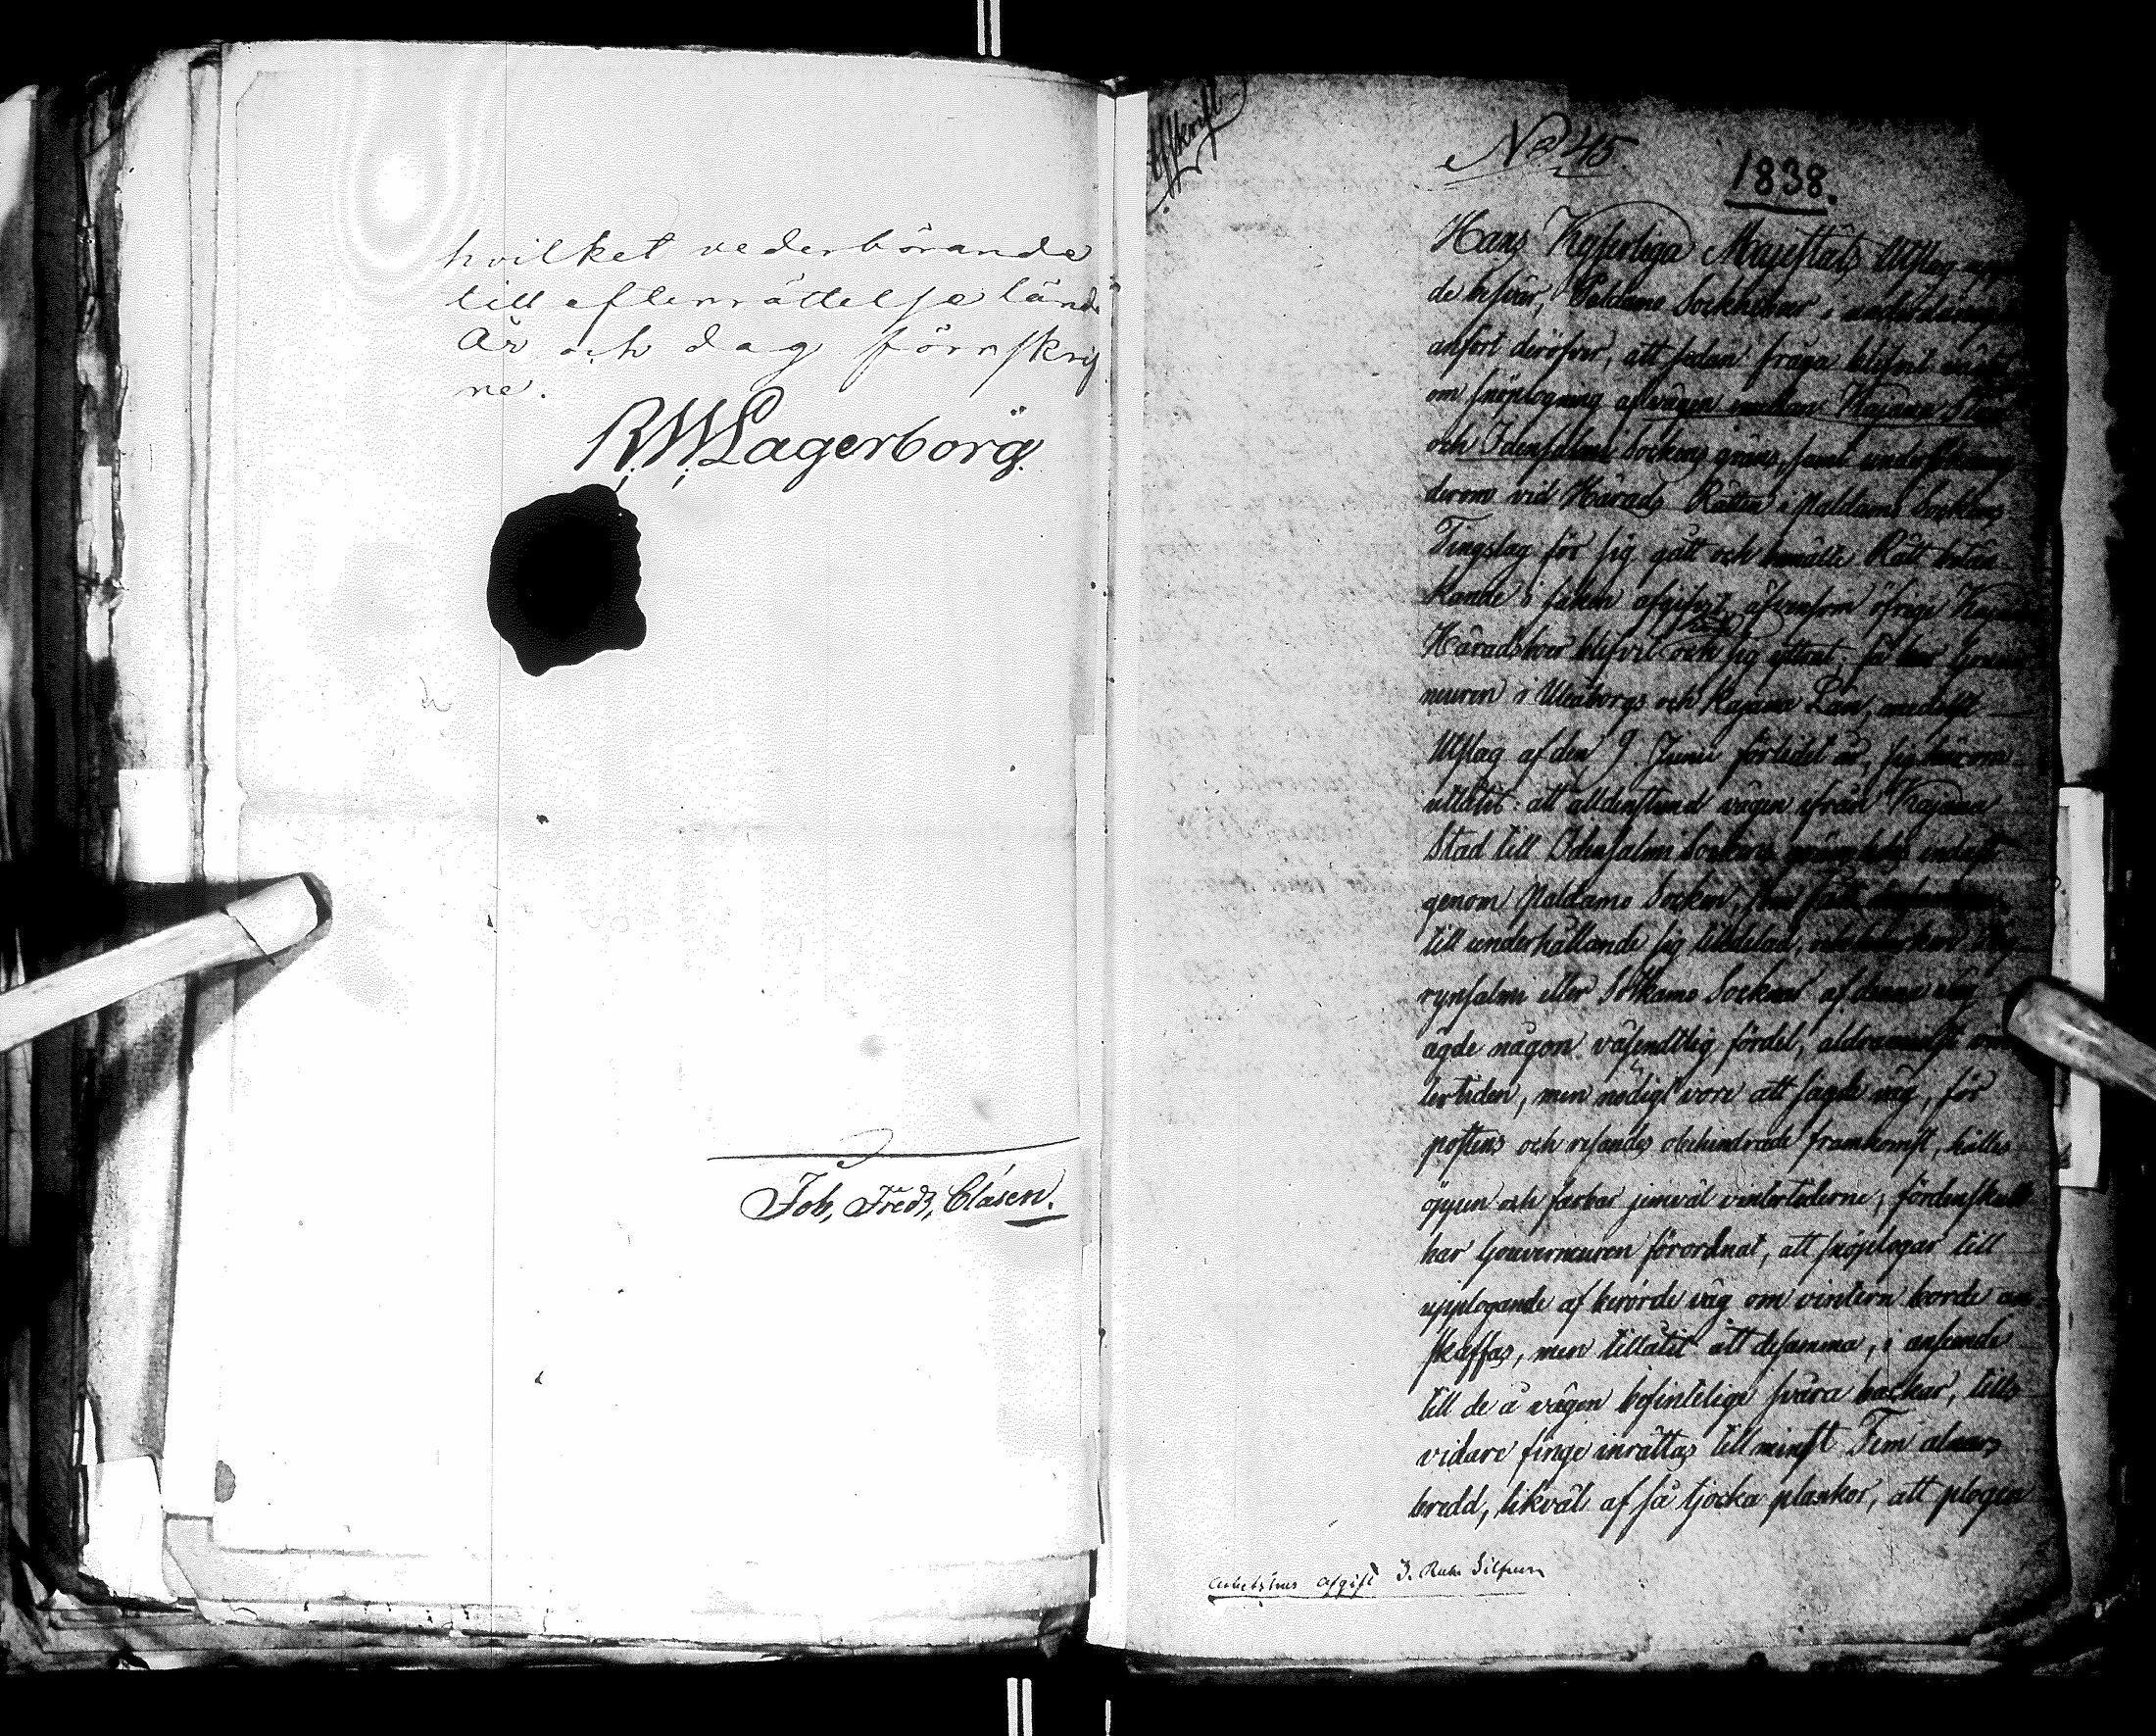 hvilket vederbörande
till efterrättelse länd
År och dag förrskrif
ne.
RWLagerborg
Joh, Fredr, Clásen.
Afskrift
No 45
1838.
Hans Kejserliga Majestäts Utslag
de besvär, Paldamo Sockneboer i
anfört deröfver, att sedan fråga blifvit
om snöplogning af vägen emellan Kajana Stad
och Idensalmi Sockens gräns, samt undersökning
derom vid Härads Rätten i Paldamo Sockens
Tingslag för sig gått och bemälte Rätt betän-
kande i saken afgifvit, äfvensom öfrige Kajana
Häradsboer blifvit och sig yttrat; så har Gouver-
neuren i Uleåborgs och Kajana Län, medelst
Utslag af den 9. Junii förlidet år, sig härom
utlåtit: att alldenstund vägen ifrån Kajana
Stad till Idensalmi Sockens endast
genom Paldamo Socken,
till underhållande sig tilldelad, och hvarken Hy-
rynsalmi eller Sotkamo Socknar af denna väg
ägde någon väsendtlig fördel, aldraminst
tertiden, men nödigt vore att sagde väg, för
postens och resandes obehindrade framkomst, hålles
öppen och farbar jemväl vintertiderne; fördenskull
har Gouverneuren förordnat, att snöplogar till
upplogande af berörde väg om vintern borde an-
skaffas, men tillåtit att desamma, i anseende
till de å vägen befintelige svåra backar, tills
vidare finge inrättas till minst Fem alnars
bredd, likväl af så tjocka plankor, att plogen
afgift 3. Rub. Silfver